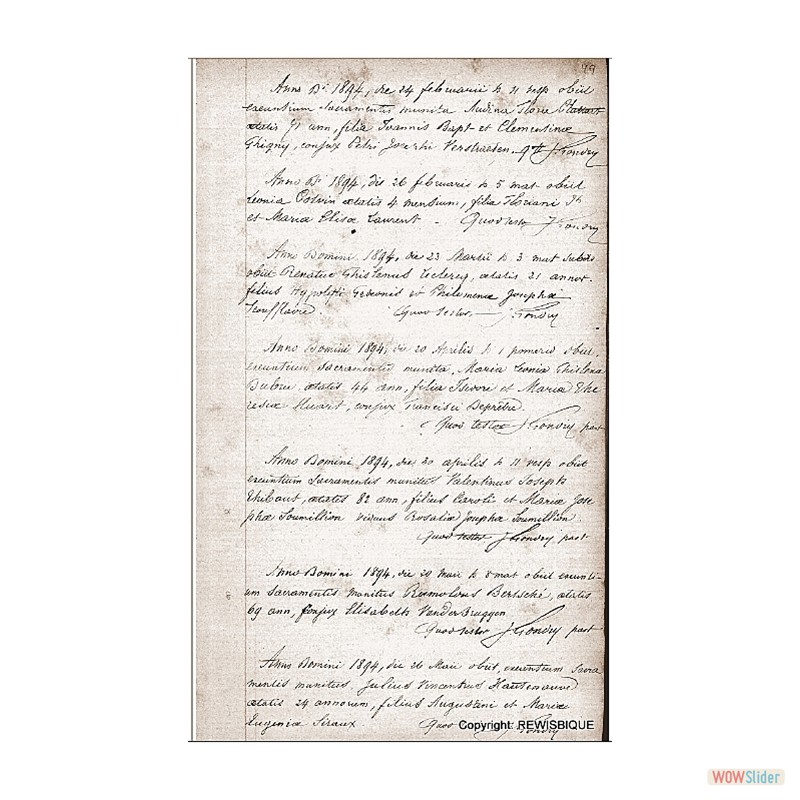 99
Anno Di 1894, die 24 februarii h 11 vesp obiit
exeuntium Sacramentis munita Flore
ætatis 71 ann, filia Joannis Bapt et Clementinæ
Ghigny, conjux Petri Josephi Verstraeten. qtt J Gondry
Anno Di 1894, die 26 februarii h 5 mat obiit
Leonia ætatis 4 mensium, filia
et Mariæ Elisæ Laurent. Quod testor J Gondry
Anno Domini 1894, die 23 Martii h 3 mat
obiit Renatus Ghislenus Leclercq, ætatis 21 annor.
filius Hypoliti Gedeonis et Philomenæ Josephæ
Quod testor J Gondry
Anno Domini 1894, die 20 Aprilis h 1 pomerid obiit,
exeuntium Sacramentis munita, Maria Leonia Ghislena
ætatis 44 ann, filia et Mariæ The
resiæ Huart, conjux Francisci Deprêtre.
Quod testor J Gondry past
Anno Domini 1894, die 30 aprilis h 11 vesp obiit
exeuntium Sacramentis munitus Valentinus Joseph
Thibaut, ætatis 82 ann, filius Caroli et Mariæ Jose
phæ Soumillion viduus Rosaliæ Josephæ Soumillion.
Quod testor J Gondry past
Anno Domini 1894, die 20 Maii h 8 mat obiit exeunti-
um Sacramentis munitus Romulous Bertsché, ætatis
69 ann, Conjux Elisabeth Vanderbruggen
Quod testor J Gondry past
Anno Domini 1894, die 26 Maii obiit, exeuntium Sacra
mentis munitus, Julius Vincentius Hautenauve
ætatis 24 annorum, filius Augustini et Mariæ
Eugeniæ Siraux. Quod J Gondry
Copyright: REWISBIQUE
WOWSlider